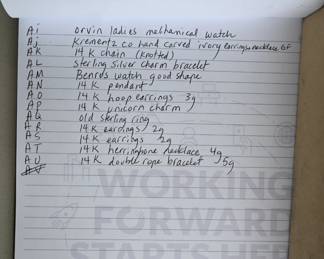 Ai orvin ladies mechanical watch
Aj Krementz co hand carved ivory earrings & necklace
AK 14 K chain (knotted)
AL Sterling silver charm bracelet
AM Benrus watch good shape
AN 14 K pendant
AO 14 K hoop earrings 3g
AP 14 K unicorn charm
AQ old sterling ring
AR 14K earrings 2g
AS 14K earrings 2g
AT 14K herringbone necklace 4g
AU 14 K double rope bracelet 5g
AV
WORKING
FORWARD
STARTS HERE